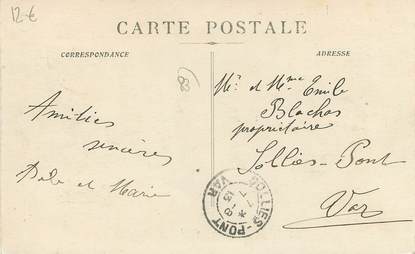 12-€
CARTE POSTALE
CORRESPONDANCE
ADRESSE
83
Amitiés
sincères
et Marie
Mr. et Mme Emile
Blachas
propriétaire
Solliès-Pont
Var
SOLLIES-PONT
VAR